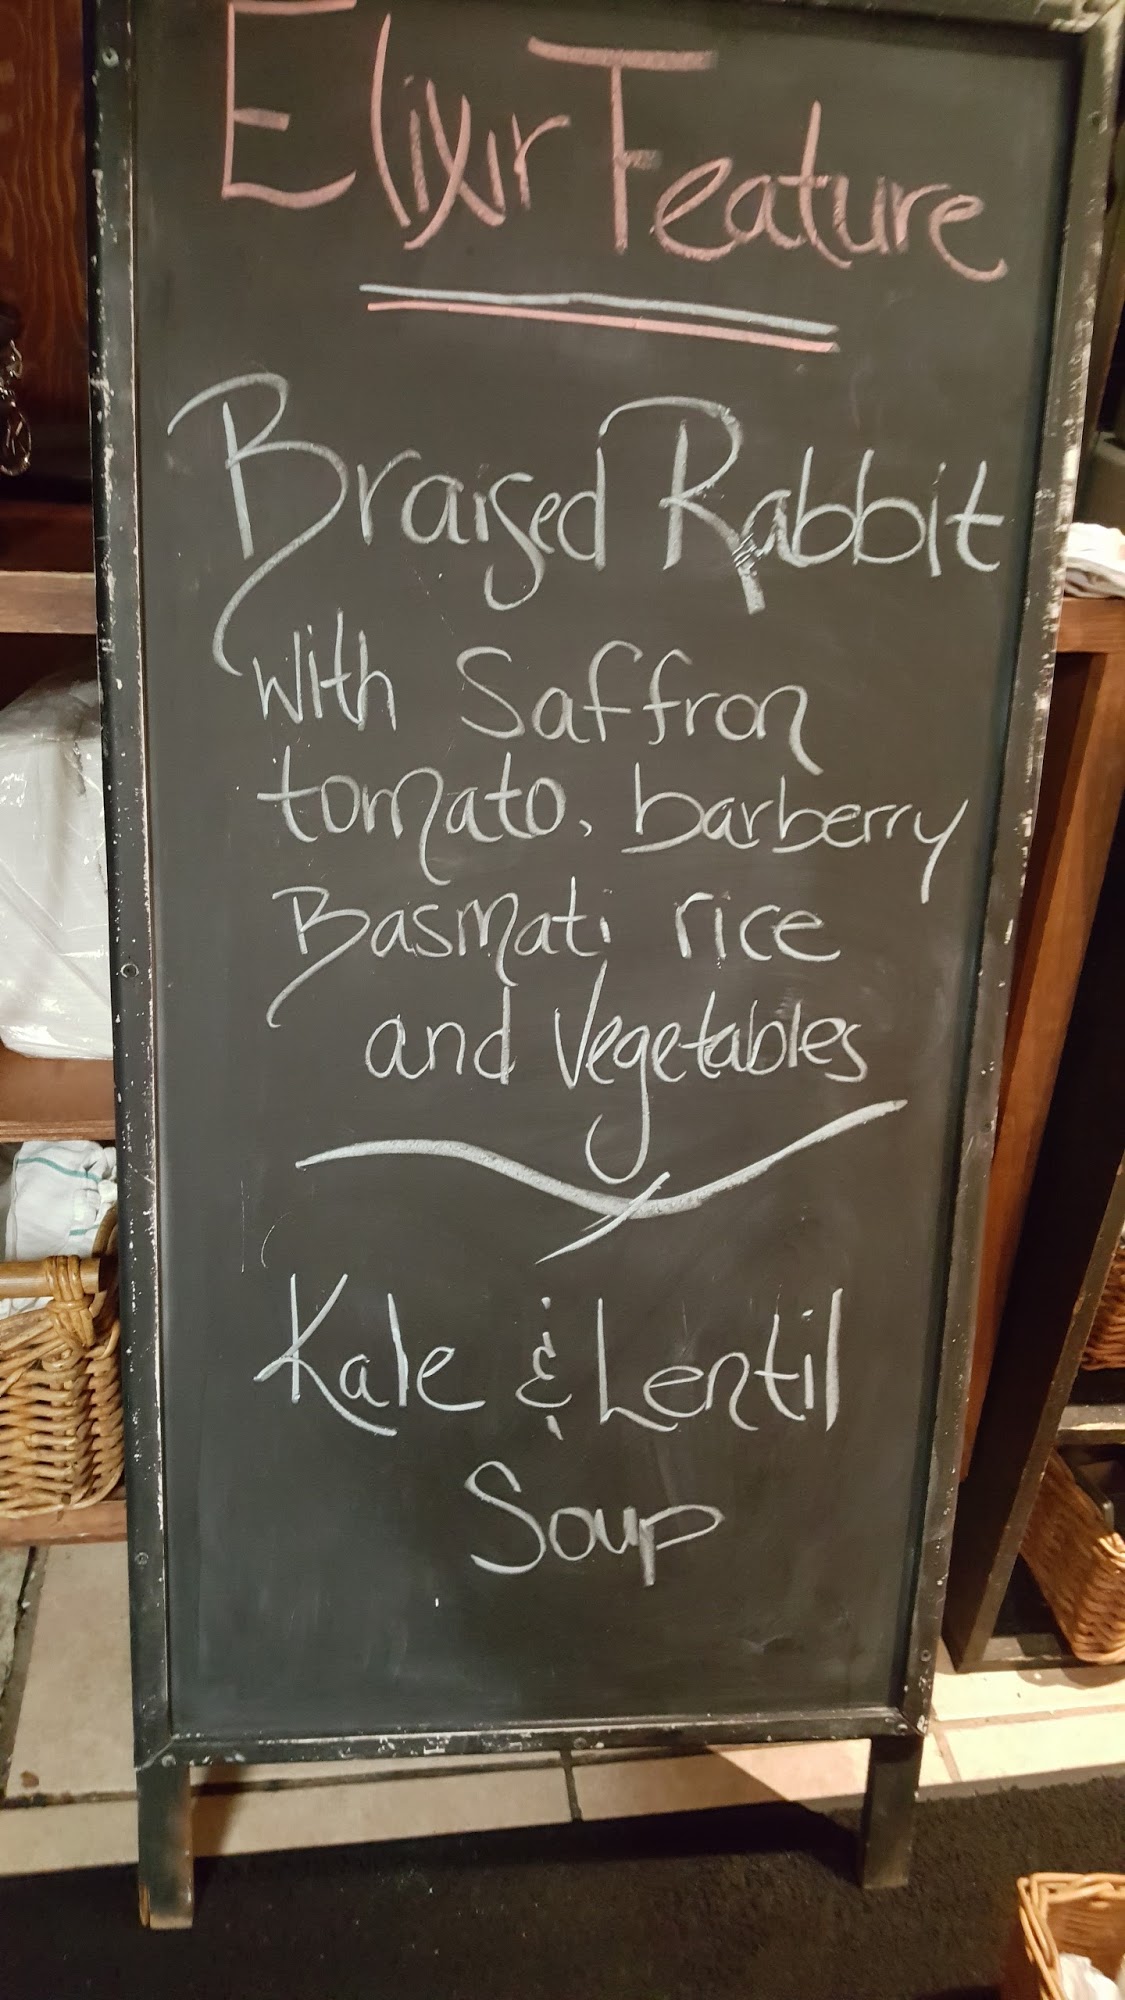 Elixir Feature
Braised Rabbit
with Saffron
tomato, barberry
Basmati rice
and Vegetables
Kale & Lentil
Soup